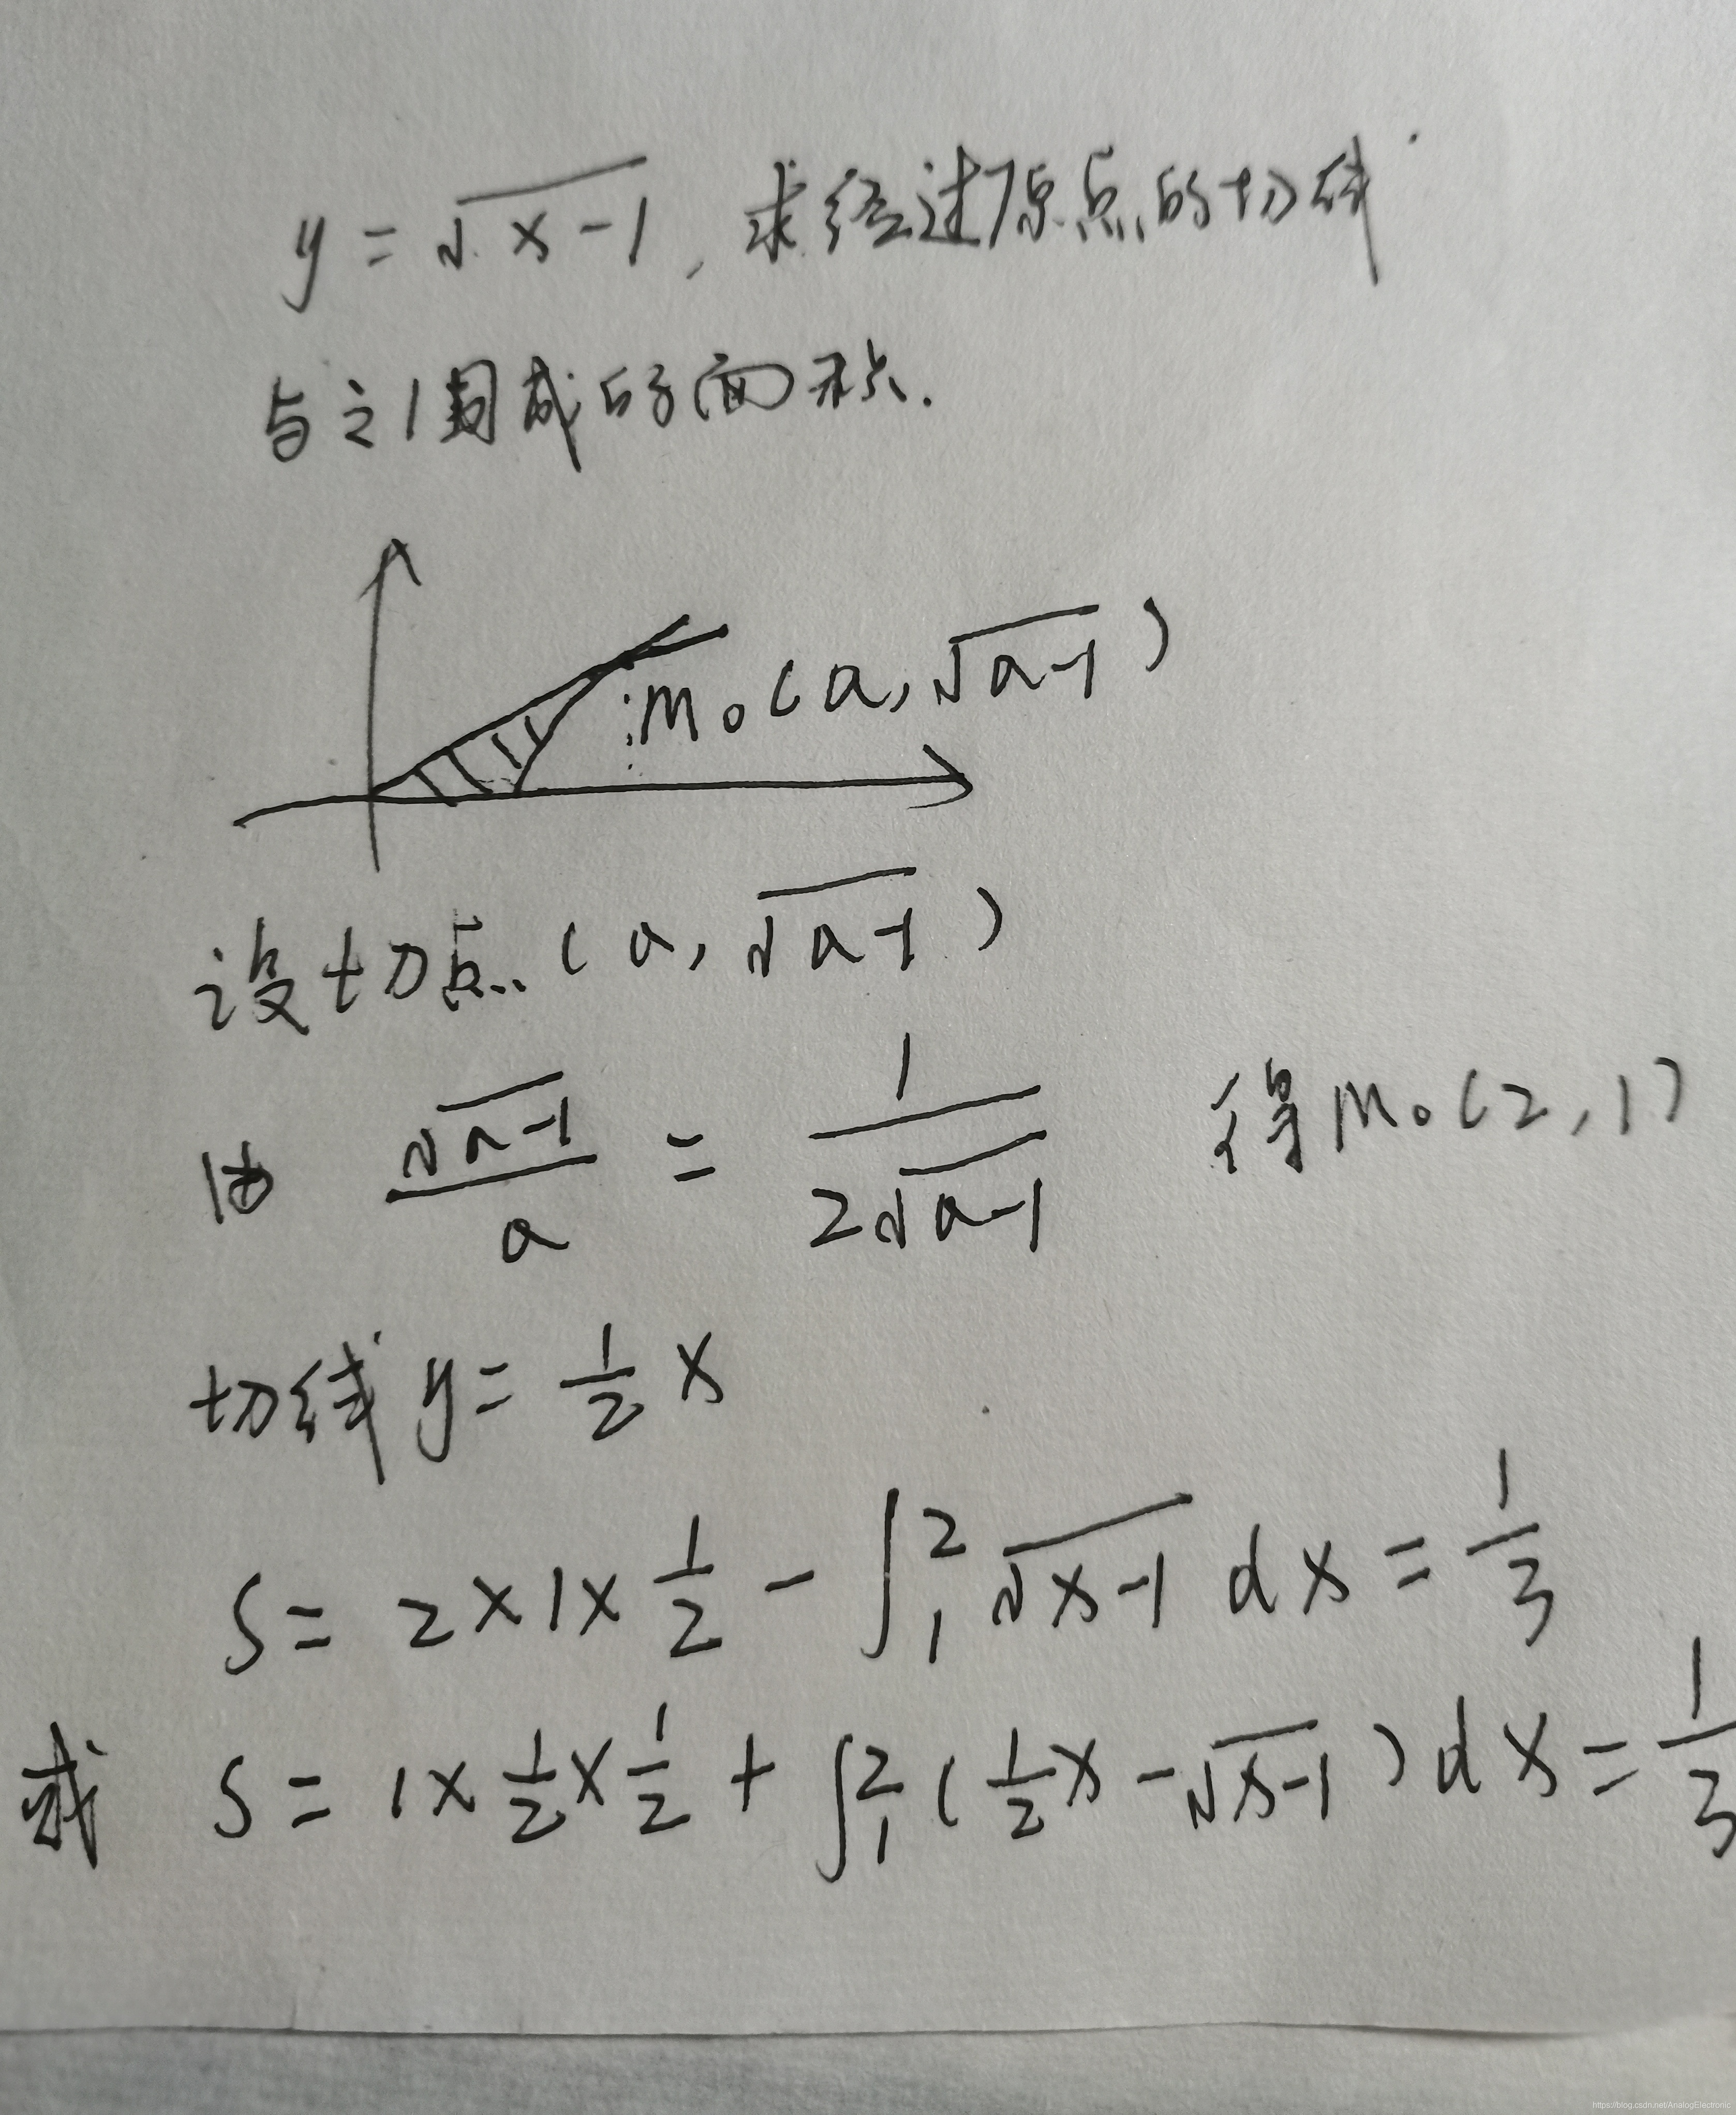 y = √(x-1), 求经过原点的切线
与之围成的面积.
M₀(a, √(a-1))
设切点(a, √(a-1))
由 √(a-1)/a = 1/(2√(a-1)) 得M₀(2,1)
切线 y = 1/2 x
S = 2×1×1/2 - ∫₁² √(x-1) dx = 1/3
或 S = 1×1/2×1/2 + ∫₁² (1/2 x - √(x-1)) dx = 1/3
https://blog.csdn.net/AnalogElectronic